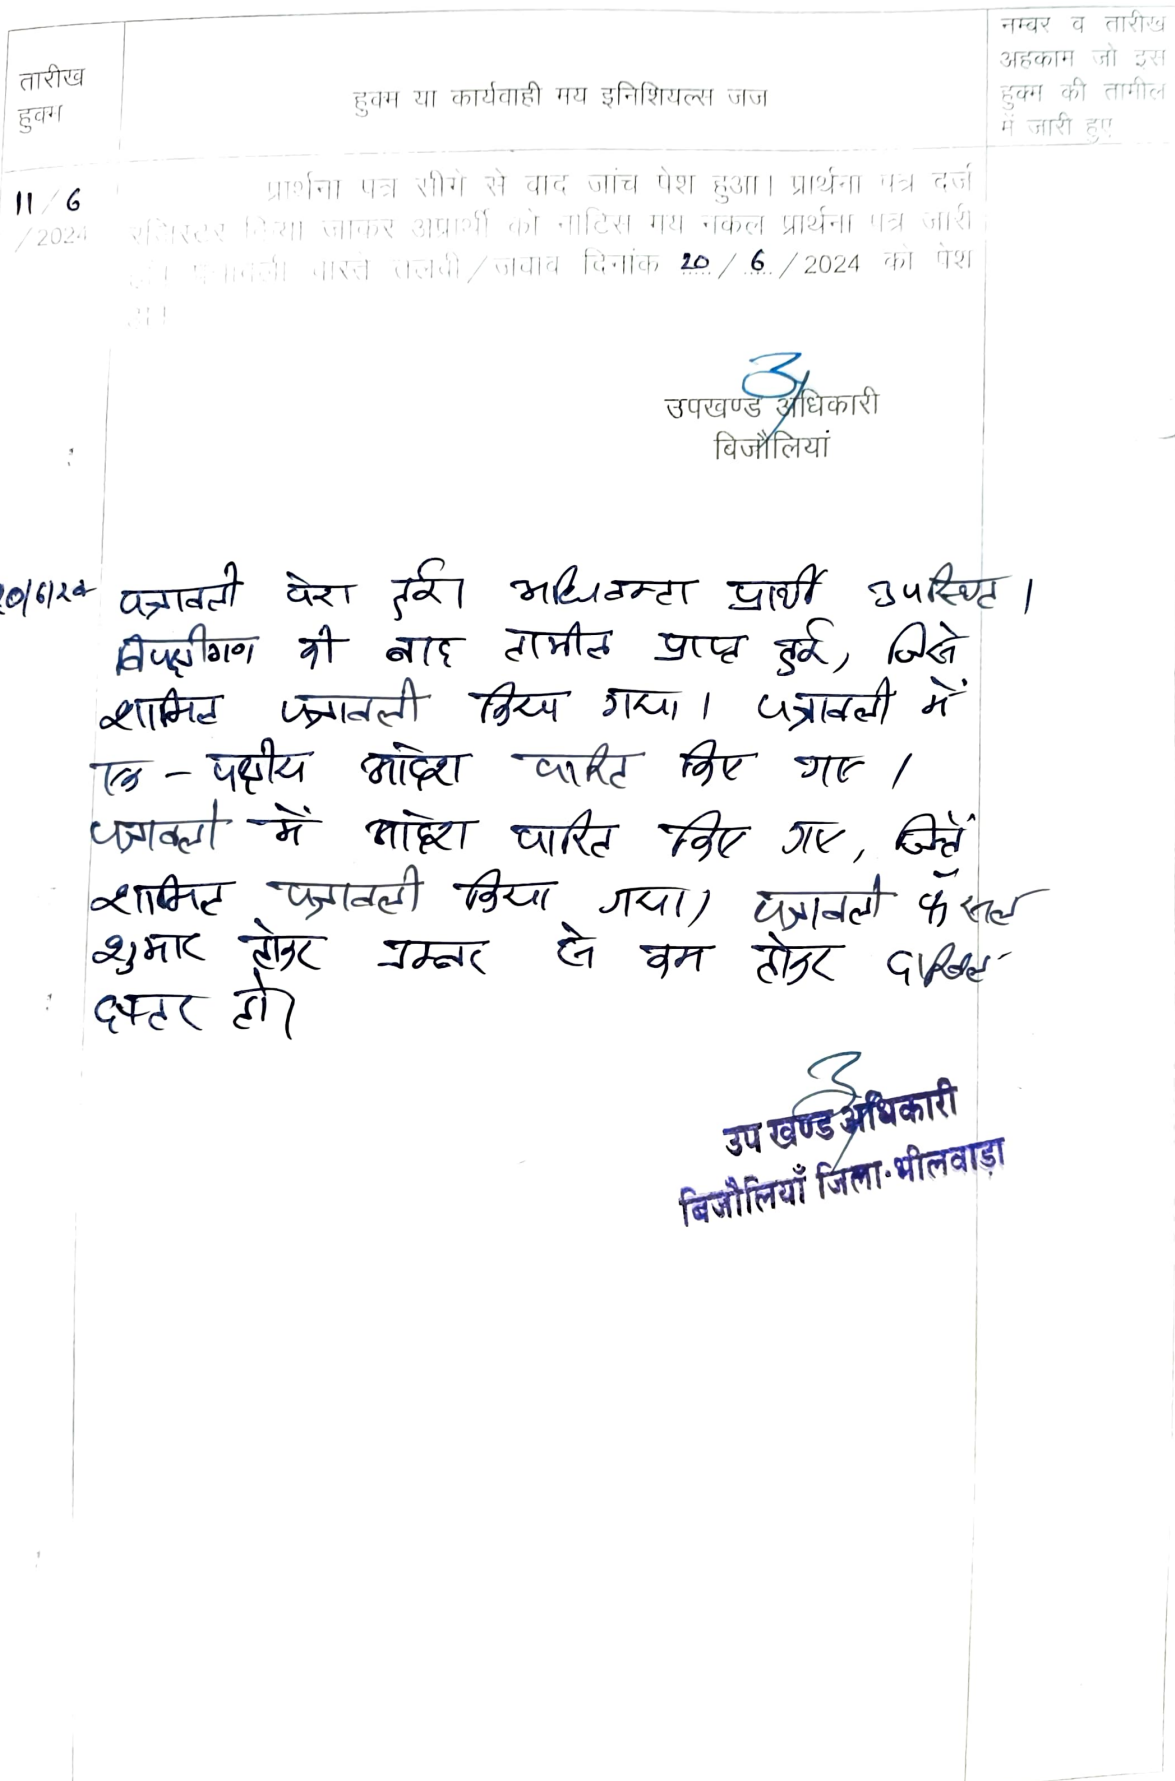 तारीख
हुक्म
हुक्म या कार्यवाही मय इनिशियल्स जज
नम्बर व तारीख
अहकाम जो इस
हुक्म की तामील
में जारी हुए
11/6
/2024
प्रार्थना पत्र सीगे से वाद जांच पेश हुआ। प्रार्थना पत्र दर्ज
रजिस्टर किया जाकर अप्रार्थी को नोटिस मय नकल प्रार्थना पत्र जारी
पत्रावली वास्ते तलवी/जवाब दिनांक 20/6/2024 को पेश
उपखण्ड अधिकारी
बिजौलियां
20/6/24
पत्रावली पेश हुई। अधिवक्ता प्रार्थी उपस्थित।
विपक्षीगण की बाद तामील प्राप्त हुई, जिसे
शामिल पत्रावली किया गया। पत्रावली में
एक-पक्षीय आदेश पारित किए गए।
पत्रावली में आदेश पारित किए गए, जिन्हें
शामिल पत्रावली किया गया। पत्रावली फैसल
शुमार होकर नम्बर से कम होकर दाखिल
दफ्तर हो।
उप खण्ड अधिकारी
बिजौलियाँ जिला-भीलवाड़ा